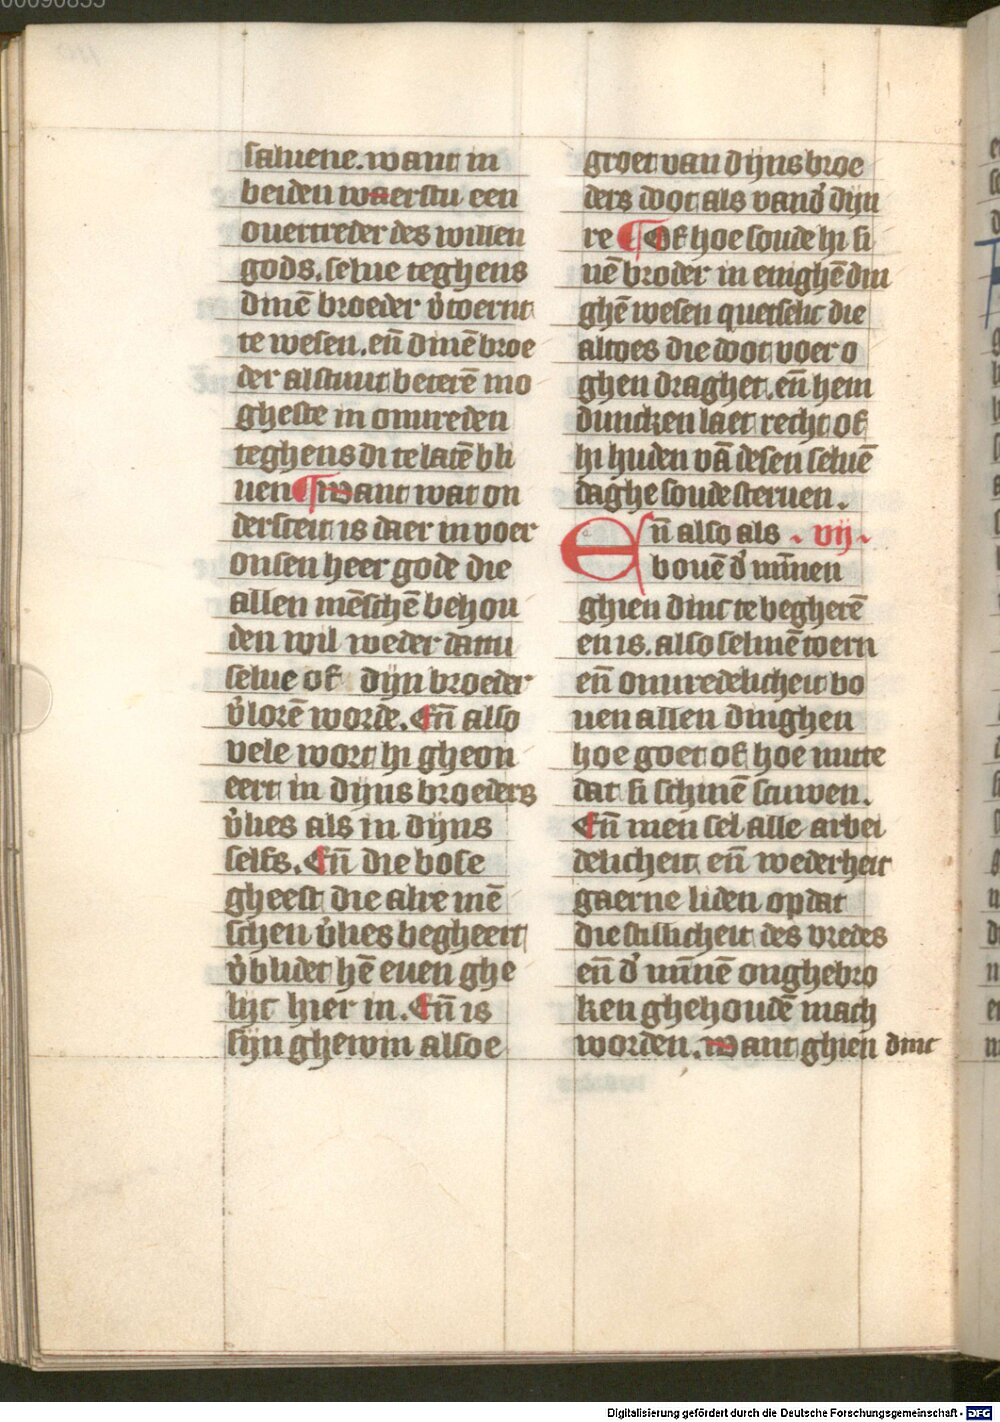 saluene. want in
beiden waerstu een
ouertreder des willen
gods. selue teghens
dinē broeder v̓toernt
te wesen. en̄ dinē broe
der alstuut beterē mo
gheste in onureden
teghens di te latē bli
uen ¶ want wat on
dersceit is daer in voer
onsen heer gode die
allen mēschē behou
den wil weder dattu
selue of dijn broeder
v̓lorē worde. En̄ also
vele wort hi gheon
eert in dijns broeders
v̓lies als in dijns
selfs. En̄ die bose
gheest die alre mē
schen v̓lies begheert
v̓blidet hē euen ghe
lijc hier in. En̄ is
sijn ghewin alsoe
groet van dijns broe
ders doot als vand̓ dijn
re ¶ Of hoe soude hi si
nē broder in enighē din
ghē wesen quetselic die
altoes die doot voer o
ghen draghet. en̄ hem
duncken laet recht of
hi huden vā desen seluē
daghe soude steruen.
En̄ also als . vij .
bouē d̓ minnen
ghien dinc te begherē
en is. also selmē toern
en̄ onuredelicheit bo
uen allen dinghen
hoe goet of hoe nutte
dat si schinē scuwen.
En̄ men sel alle arbei
delicheit en̄ wederheit
gaerne liden op dat
die stillicheit des vredes
en̄ d̓ minnē onghebro
ken ghehoudē mach
worden. want ghien dinc
Digitalisierung gefördert durch die Deutsche Forschungsgemeinschaft - DFG